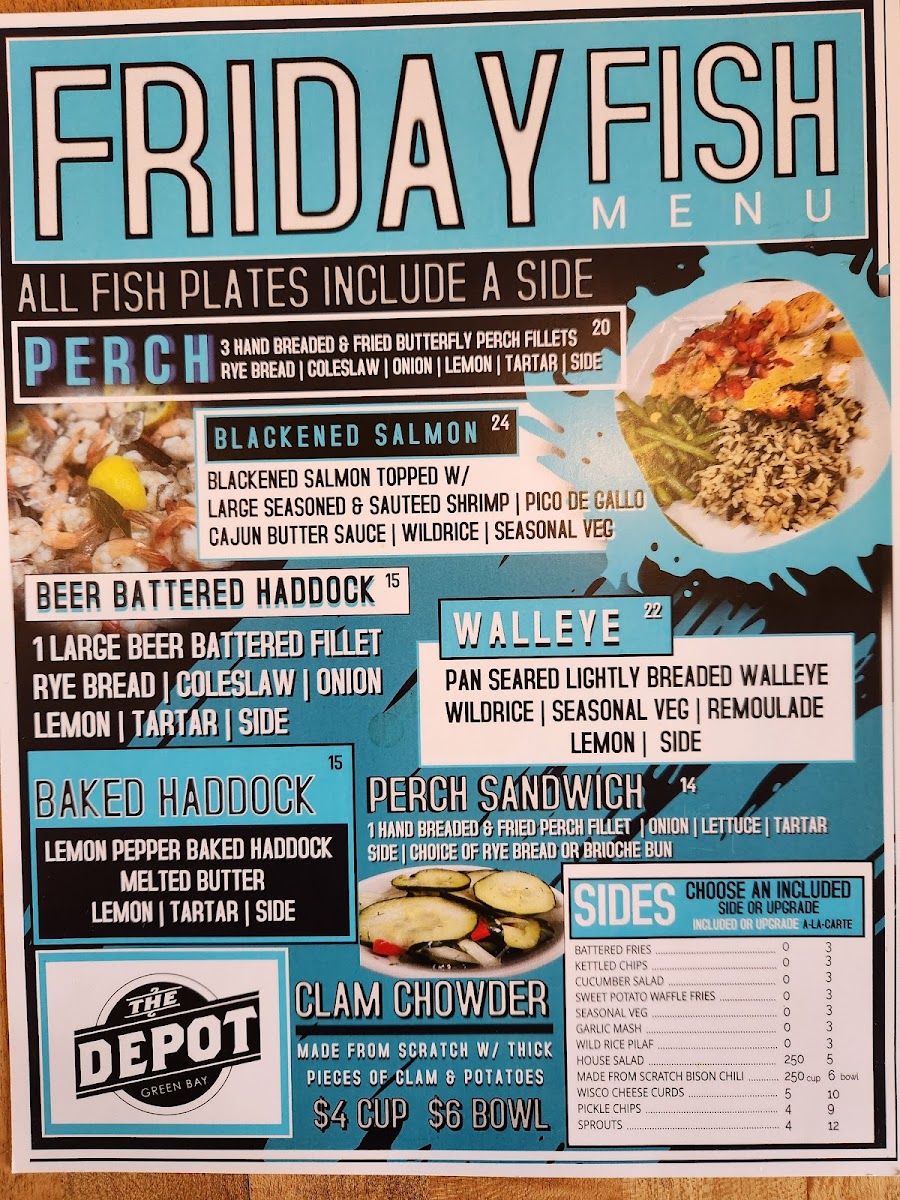 FRIDAY FISH
MENU
ALL FISH PLATES INCLUDE A SIDE
PERCH
3 HAND BREADED & FRIED BUTTERFLY PERCH FILLETS 20
RYE BREAD | COLESLAW | ONION | LEMON | TARTAR | SIDE
BLACKENED SALMON 24
BLACKENED SALMON TOPPED W/
LARGE SEASONED & SAUTEED SHRIMP | PICO DE GALLO
CAJUN BUTTER SAUCE | WILDRICE | SEASONAL VEG
BEER BATTERED HADDOCK 15
1 LARGE BEER BATTERED FILLET
RYE BREAD | COLESLAW | ONION
LEMON | TARTAR | SIDE
WALLEYE 22
PAN SEARED LIGHTLY BREADED WALLEYE
WILDRICE | SEASONAL VEG | REMOULADE
LEMON | SIDE
BAKED HADDOCK 15
LEMON PEPPER BAKED HADDOCK
MELTED BUTTER
LEMON | TARTAR | SIDE
PERCH SANDWICH 14
1 HAND BREADED & FRIED PERCH FILLET | ONION | LETTUCE | TARTAR
SIDE | CHOICE OF RYE BREAD OR BRIOCHE BUN
THE
DEPOT
GREEN BAY
CLAM CHOWDER
MADE FROM SCRATCH W/ THICK
PIECES OF CLAM & POTATOES
$4 CUP $6 BOWL
SIDES
CHOOSE AN INCLUDED
SIDE OR UPGRADE
INCLUDED OR UPGRADE A-LA-CARTE
BATTERED FRIES 0 3
KETTLED CHIPS 0 3
CUCUMBER SALAD 0 3
SWEET POTATO WAFFLE FRIES 0 3
SEASONAL VEG 0 3
GARLIC MASH 0 3
WILD RICE PILAF 0 3
HOUSE SALAD 250 5
MADE FROM SCRATCH BISON CHILI 250 cup 6 bowl
WISCO CHEESE CURDS 5 10
PICKLE CHIPS 4 9
SPROUTS 4 12